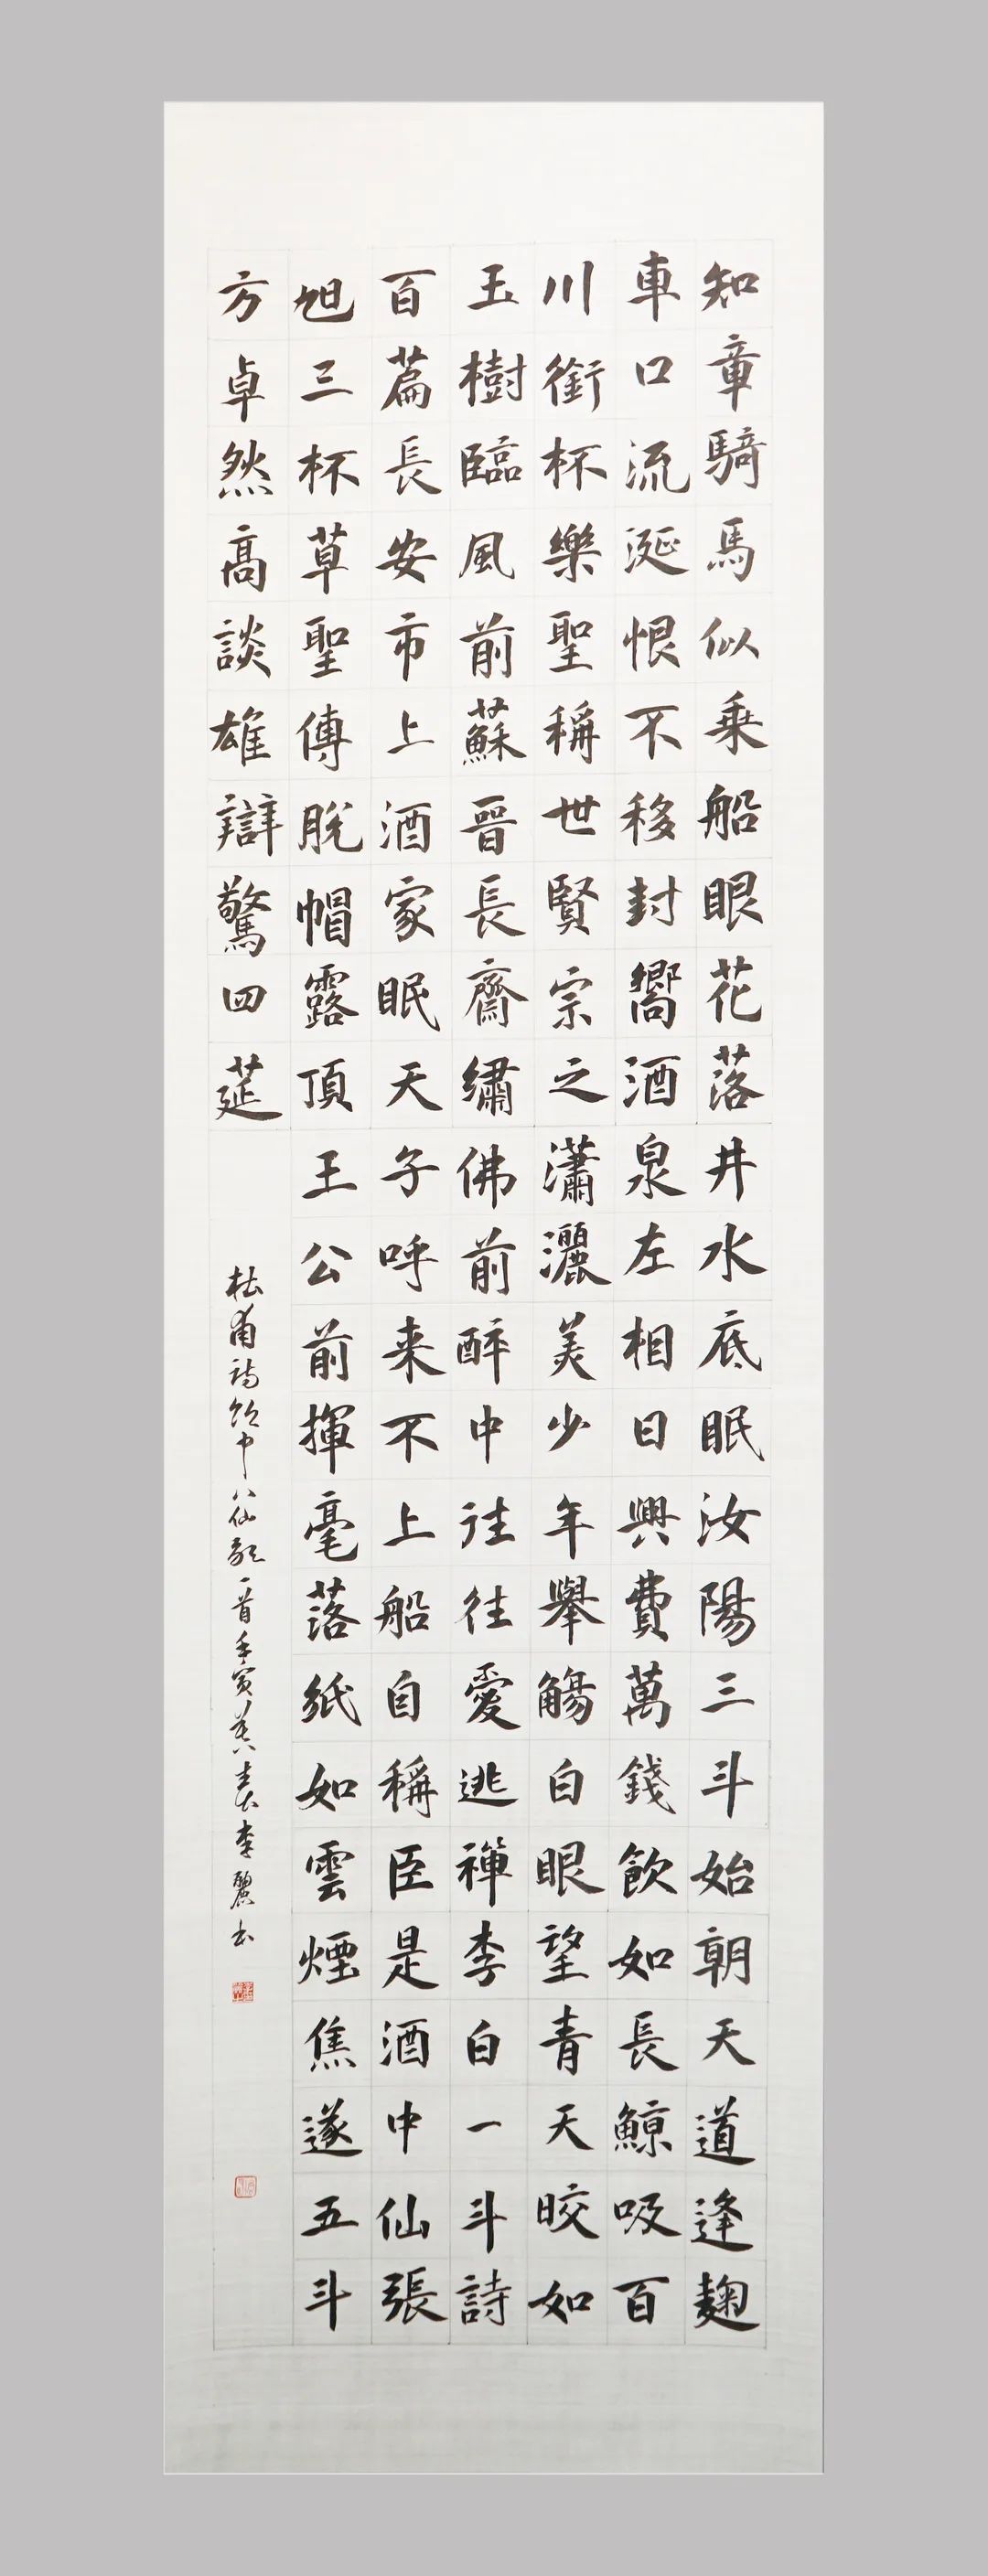 知章騎馬似乗船眼花落井水底眠汝陽三斗始朝天道逢麹
車口流涎恨不移封嚮酒泉左相日興費萬錢飲如長鯨吸百
川銜杯樂聖稱世賢宗之瀟灑美少年舉觴白眼望青天皎如
玉樹臨風前蘇晉長齋繡佛前醉中往往愛逃禪李白一斗詩
百篇長安市上酒家眠天子呼来不上船自稱臣是酒中仙張
旭三杯草聖傳脫帽露頂王公前揮毫落紙如雲煙焦遂五斗
方卓然高談雄辯驚四莚
杜甫詩飲中八仙歌一首壬寅暮春李麗書